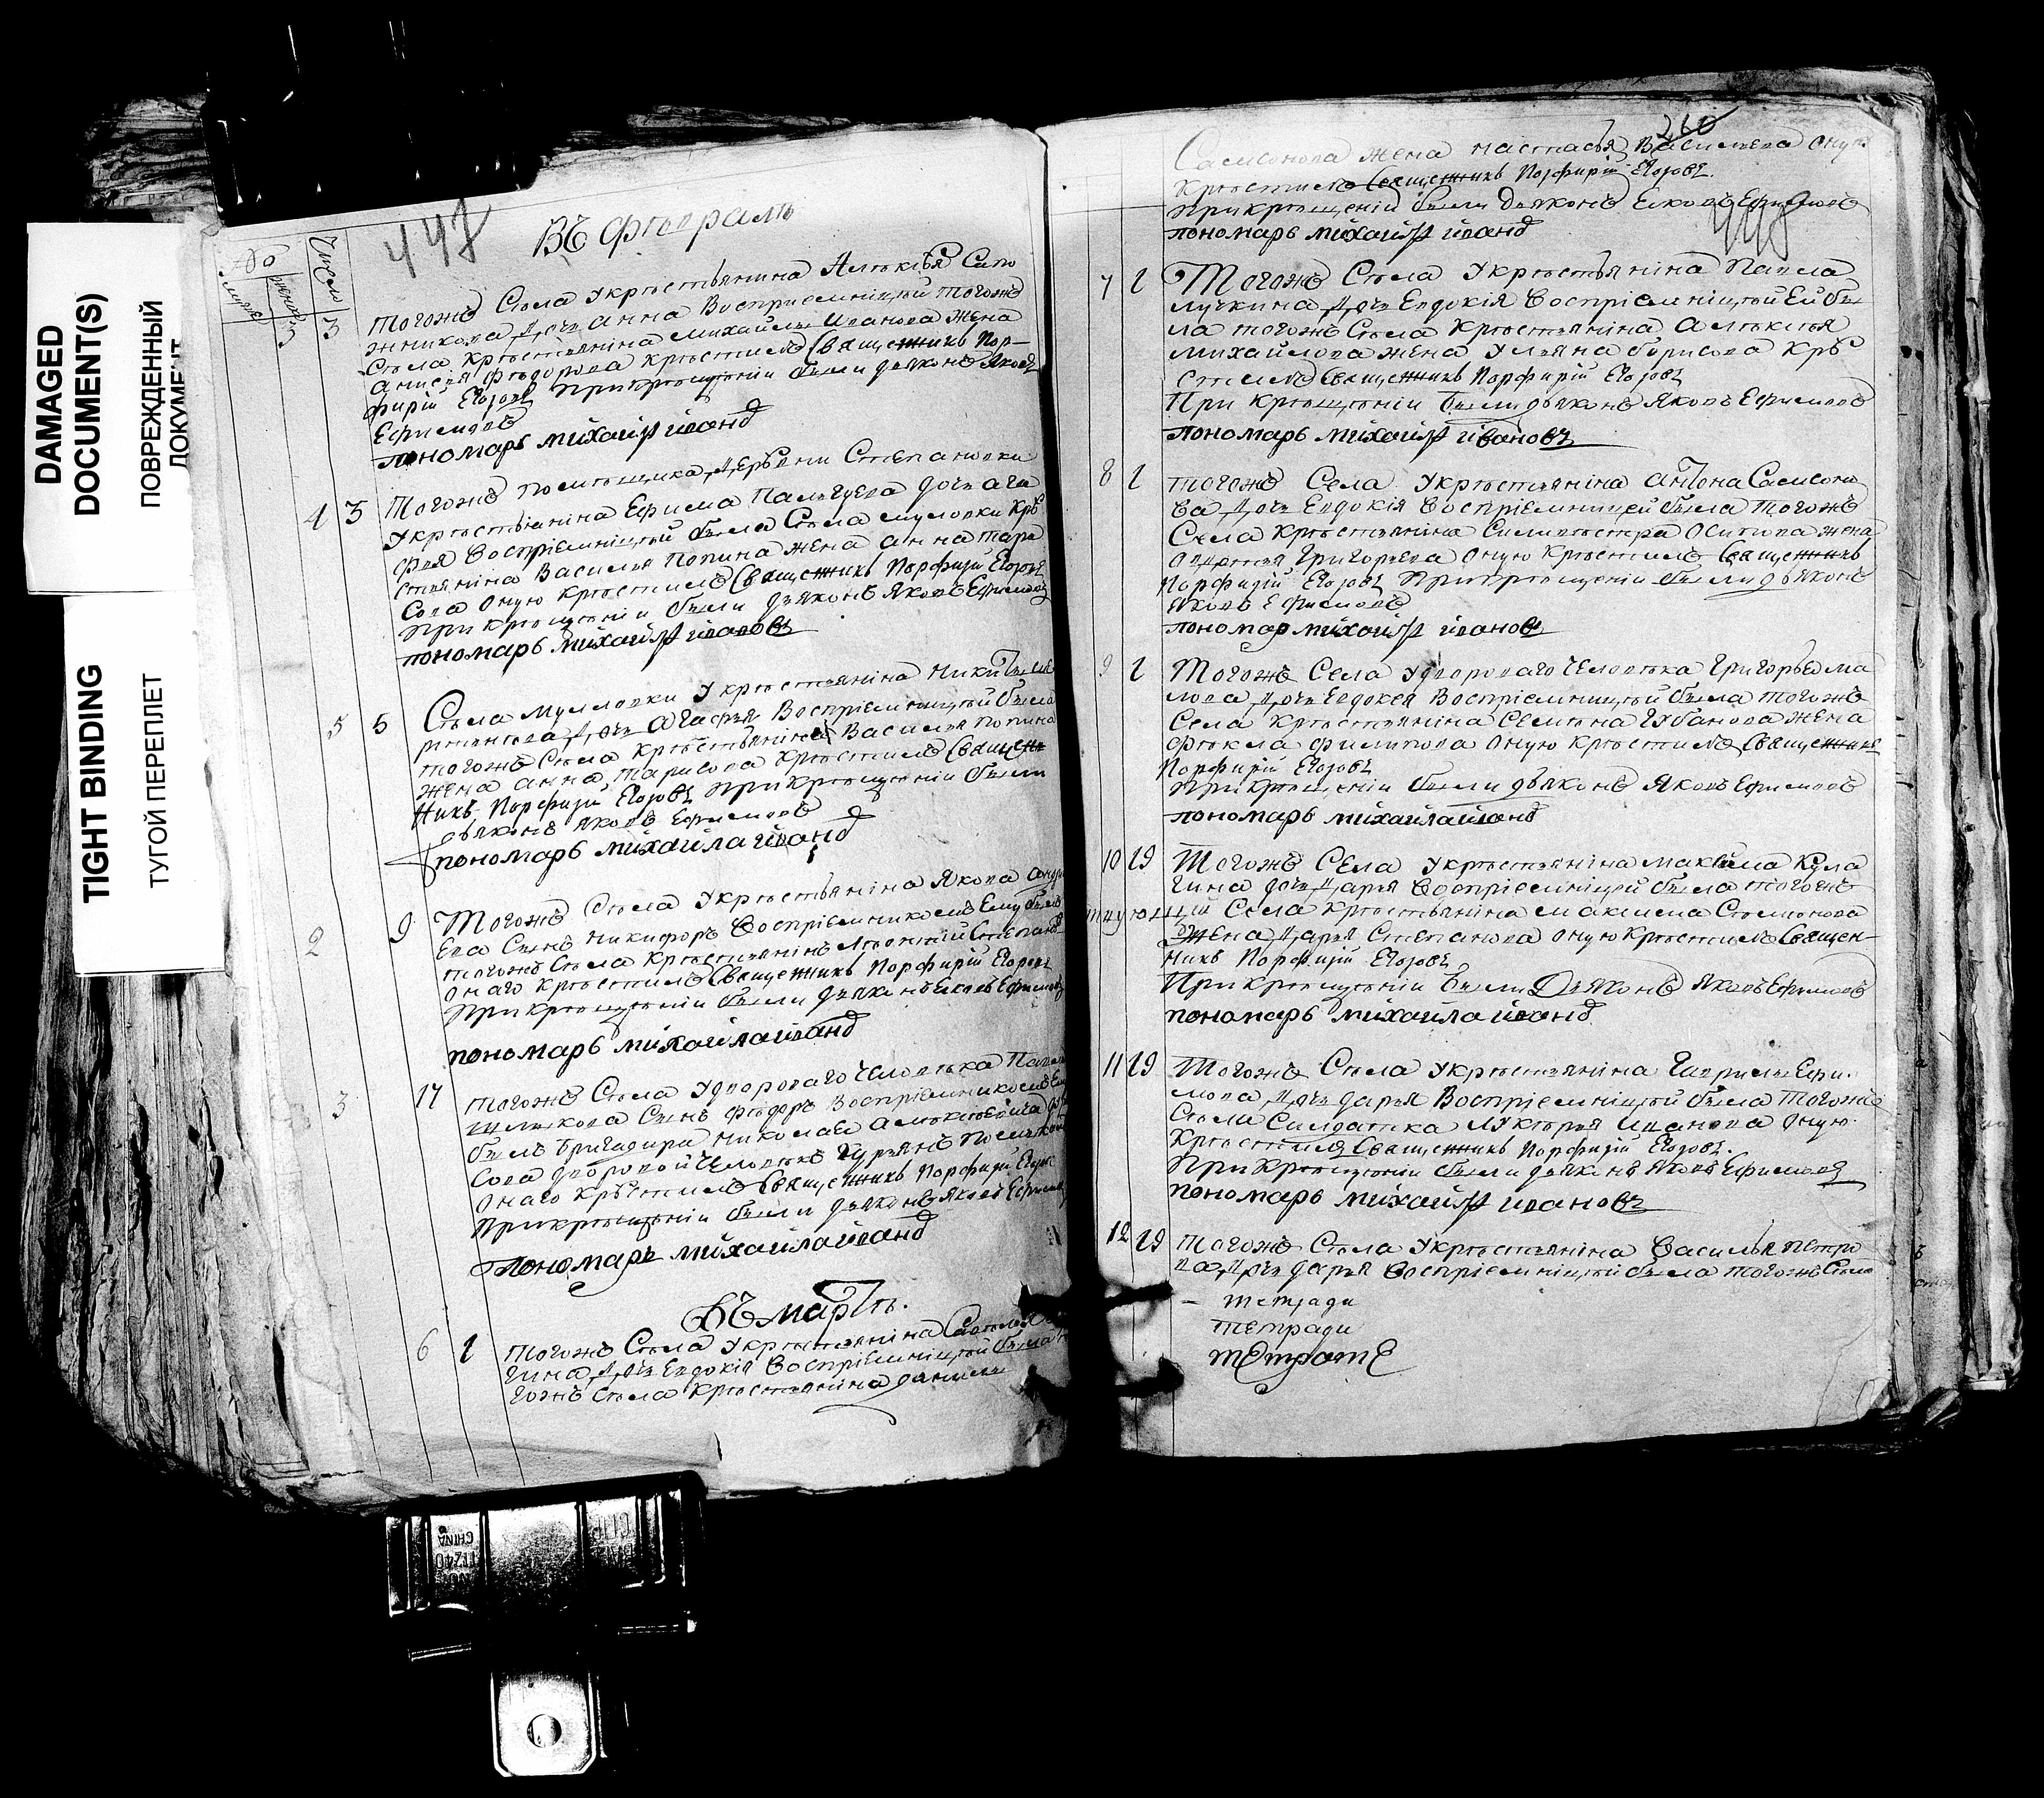 DAMAGED
DOCUMENT(S)
ПОВРЕЖДЕННЫЙ
ДОКУМЕНТ
TIGHT BINDING
ТУГОЙ ПЕРЕПЛЕТ
447
Въ февралѣ
№
Число
3 3 Тогожъ Села укрѣстьянина Алѣксѣя Сапо
жникова дочь Анна Восприемницѣй тогожъ
Села крѣстьянина Михайлы Иванова жена
Анисья Фѣдорова крѣстилъ Священникъ Пор-
фирiй Егоровъ При крѣщѣнiи были дьяконъ Яковъ
Ефимовъ
пономарь михаилъ ивановъ
4 3 Тогожъ помѣщика дѣрѣвни Степановки
укрѣстьянина Ефима дочь Ага
фья Воспрiемницѣй была Села муловки крѣ
стьянiна Василья Попина жена анна тара
сова оную крѣстилъ Священникъ Порфирiй Егоровъ
При крѣщѣнiи были дьяконъ Яковъ Ефимовъ
пономарь михаилъ ивановъ
5 5 Села Мулловки укрѣстьянiна Никиты
дочь Агафья Воспрiемницѣй была
тогожъ Села крѣстьянiна Василья попина
жена анна тарасова крѣстилъ Священ
никъ Порфирiй Егоровъ При крѣщѣнiи были
дьяконъ яковъ Ефимовъ
пономарь михаила иванд
2 9 Тогожъ Села укрѣстьянiна Якова Андре
ева Сынъ никифоръ Воспрiемникомъ Ему былъ
тогожъ Села крѣстьянiнъ Лѣонтiй Степановъ
онаго крѣстилъ Священникъ Порфирiй Егоровъ
При крѣщѣнiи были дьяконъ Яковъ Ефимовъ
пономарь михаила иванд
3 17 тогожъ Села удвороваго человѣка Павла
Сынъ Фѣдоръ Воспрiемникомъ Ему
былъ бригадира николая Алѣксѣевича
дворовой человѣкъ
онаго крѣстилъ Священникъ Порфирiй Егоровъ
При крѣщѣнiи были дьяконъ Яковъ Ефимовъ
пономарь михаила иванд
Въ мартѣ.
6 1 тогожъ Села укрѣстьянiна Савелья
гина дочь Евдокiя Воспрiемницѣй была то
гожъ Села крѣстьянiна данилы
260
448
Самсонова жена настасья Васильева оную
крѣстилъ Священникъ Порфирiй Егоровъ.
При крѣщенiи были дьяконъ яковъ Ефимовъ
пономарь михаилъ иванд
7 1 Тогожъ Села укрѣстьянiна Павла
лучкина дочь Евдокiя Воспрiемнiцѣй Ей бы
ла тогожъ Села крѣстьянiна алѣксѣя
михайлова жена ульяна борисова крѣ
стилъ Священникъ Порфирiй Егоровъ
При крѣщѣнiи были дьяконъ Яковъ Ефимовъ
пономарь михаилъ ивановъ
8 1 тогожъ Села укрѣстьянiна антона Самсоно
ва дочь Евдокiя Воспрiемницей была тогожъ
Села крѣстьянiна Силивѣстра Осипова жена
авдотья Григорьева оную крѣстилъ Священникъ
Порфирiй Егоровъ При крѣщенiи были дьяконъ
яковъ Ефимовъ
пономар михаилъ иванов
9 1 Тогожъ Села удвороваго человѣка Григорья ма
лова дочь Евдокея Воспрiемницѣй была тогожъ
Села крѣстьянiна Семѣна губанова жена
фѣкела филипова оную крѣстилъ Священникъ
Порфирiй Егоровъ
При крѣщенiи были дьяконъ Яковъ Ефимовъ
пономарь михаила иванд
10 19 тогожъ Села укрѣстьянiна максима кула
гина дочь дарья Воспрiемнiцей была тогожъ
Села крѣстьянiна максима Сѣмѣонова
жена дарья Степанова оную крѣстилъ Священ-
никъ Порфирiй Егоровъ
При крѣщѣнiи были дьяконъ яковъ Ефимовъ
пономарь михаила иванд
11 19 тогожъ Села укрѣстьянiна Гаврилы Ефи.
мова дочь дарья Воспрiемнiцѣй была тогожъ
Села Салдатка лукѣрья Иванова оную
крѣстилъ Священникъ Порфирiй Егоровъ.
При крѣщѣнiи были дьяконъ яковъ Ефимовъ
пономарь михаилъ ивановъ
12 19 тогожъ Села укрѣстьянiна Василья петро
ва дочь дарья Воспрiемнiцѣй была тогожъ Села
тетради
тетради